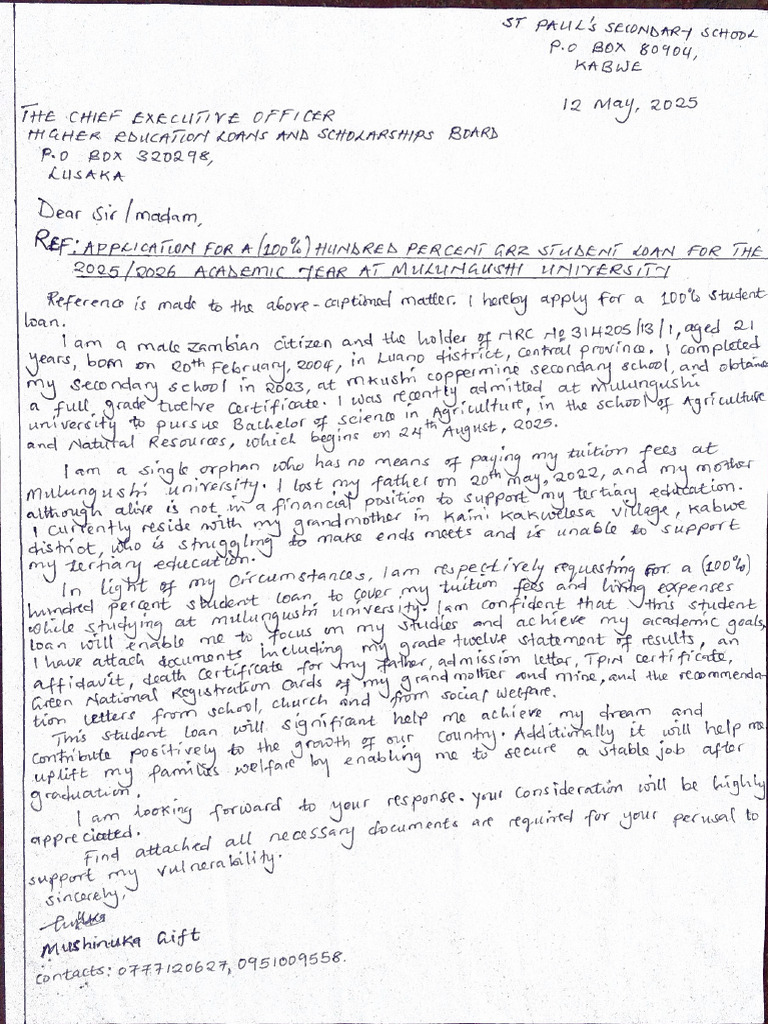 ST PAUL'S SECONDARY SCHOOL
P.O BOX 80904,
KABWE
12 May, 2025
THE CHIEF EXECUTIVE OFFICER
HIGHER EDUCATION LOANS AND SCHOLARSHIPS BOARD
P.O BOX 320298,
LUSAKA
Dear Sir/madam,
REF: APPLICATION FOR A (100%) HUNDRED PERCENT GRZ STUDENT LOAN FOR THE
2025/2026 ACADEMIC YEAR AT MULUNGUSHI UNIVERSITY
Reference is made to the above-captioned matter. I hereby apply for a 100% student
loan.
I am a male Zambian citizen and the holder of NRC No 314205/13/1, aged 21
years, born on 20th February, 2004, in Luano district, central province. I completed
my Secondary school in 2023, at mkushi coppermine secondary school, and obtained
a full grade twelve certificate. I was recently admitted at Mulungushi
university to pursue Bachelor of science in Agriculture, in the school of Agriculture
and Natural Resources, which begins on 24th August, 2025.
I am a single orphan who has no means of paying my tuition fees at
Mulungushi university. I lost my father on 20th may, 2022, and my mother
although alive is not in a financial position to support my tertiary education.
I currently reside with my grandmother in Kaini Kakwelesa village, Kabwe
district, who is struggling to make ends meets and is unable to support
my tertiary education.
In light of my circumstances, I am respectively requesting for a (100%)
hundred percent student loan to cover my tuition fees and living expenses
while studying at mulungushi university. I am confident that this student
loan will enable me to focus on my studies and achieve my academic goals,
I have attach documents including my grade twelve statement of results, an
affidavit, death certificate for my father, admission letter, TPIN certificate,
Green National Registration Cards of my grandmother and mine, and the recommenda-
tion letters from school, church and from social welfare.
This student loan will significant help me achieve my dream and
contribute positively to the growth of our country. Additionally it will help me
uplift my families welfare by enabling me to secure a stable job after
graduation.
I am looking forward to your response. your consideration will be highly
appreciated.
Find attached all necessary documents are required for your perusal to
support my vulnerability.
sincerely,
Mushinuka Gift
contacts: 0777120627, 0951009558.